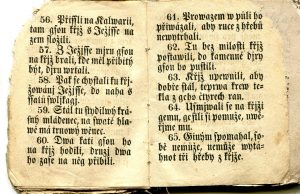 56. Přissli na Kalwarii,
tam gsou křjž s Ježjsse na
zem složili.
57. Z Ježjsse mjru gsou
na křjž brali, kde měl přibitý
být, djru wrtali.
58. Pak se chystali tu křj-
žowání Ježjsse, do naha s
ssatů swlékagj.
59. Stál tu stydliwý krá-
sný mládenec, na swaté hla-
wě má trnowý wěnec.
60. Dwa katí gsou ho
na křjž hodili, druzý dwa
ho zase na něg přibili.
61. Prowazem w půli ho
přiwázali, aby ruce z hřebů
newytrhali.
62. Tu bez milosti křjž
postawili, do kamenné djry
gsou ho pustili.
63. Křjž upewnili, aby
dobře stál, teprwa krew te-
kla z geho čtyrech ran.
64. Usmjwali se na křjži
gemu, gestli si pomůže, uwě-
řjme mu.
65. Giným spomahal, so-
bě nemůže, nemůže wytá-
hnot tři hřeby z křjže.